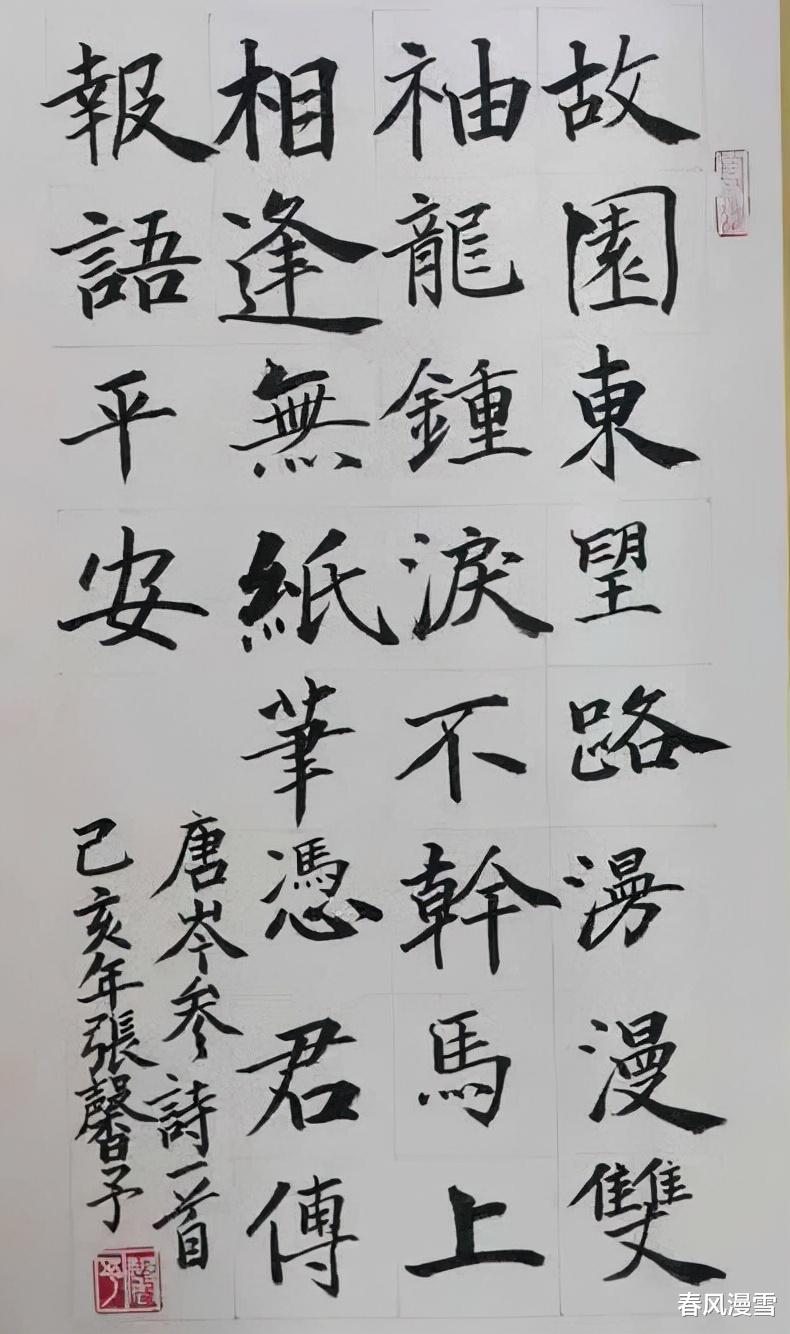 故園東望路漫漫雙
袖龍鍾淚不幹馬上
相逢無紙筆憑君傳
報語平安
唐岑參詩一首
己亥年張馨予
春风漫雪